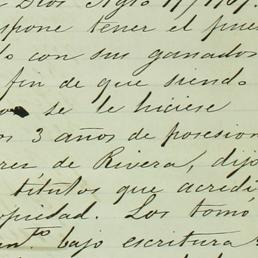 Dios Agto 17/1767.
spone tener el pue
lo con sus ganados
fin de que siendo
se le hiciese
os 3 años de posesion
res de Rivera, dijo
títulos que acredi
opiedad. Los tomó
bajo escritura